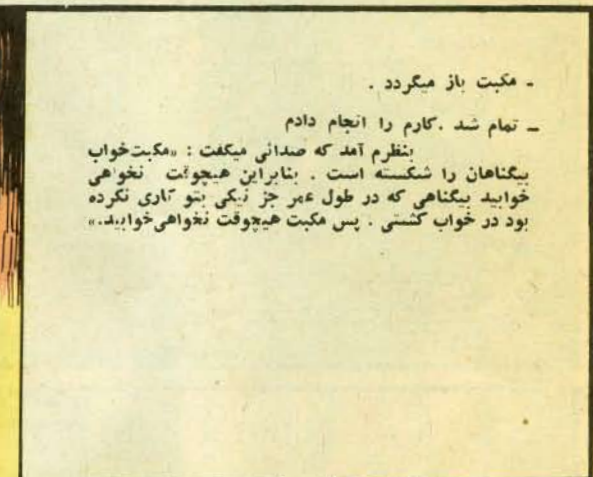 ـ مکبت باز میگردد .
ـ تمام شد .کارم را انجام دادم
بنظرم آمد که صدائی میگفت : «مکبت‌خواب
بیگناهان را شکسته است . بنابراین هیچوقت نخواهی
خوابید بیگناهی که در طول عمر جز نیکی بتو کاری نکرده
بود در خواب کشتی . پس مکبت هیچوقت نخواهی‌خوابید.»